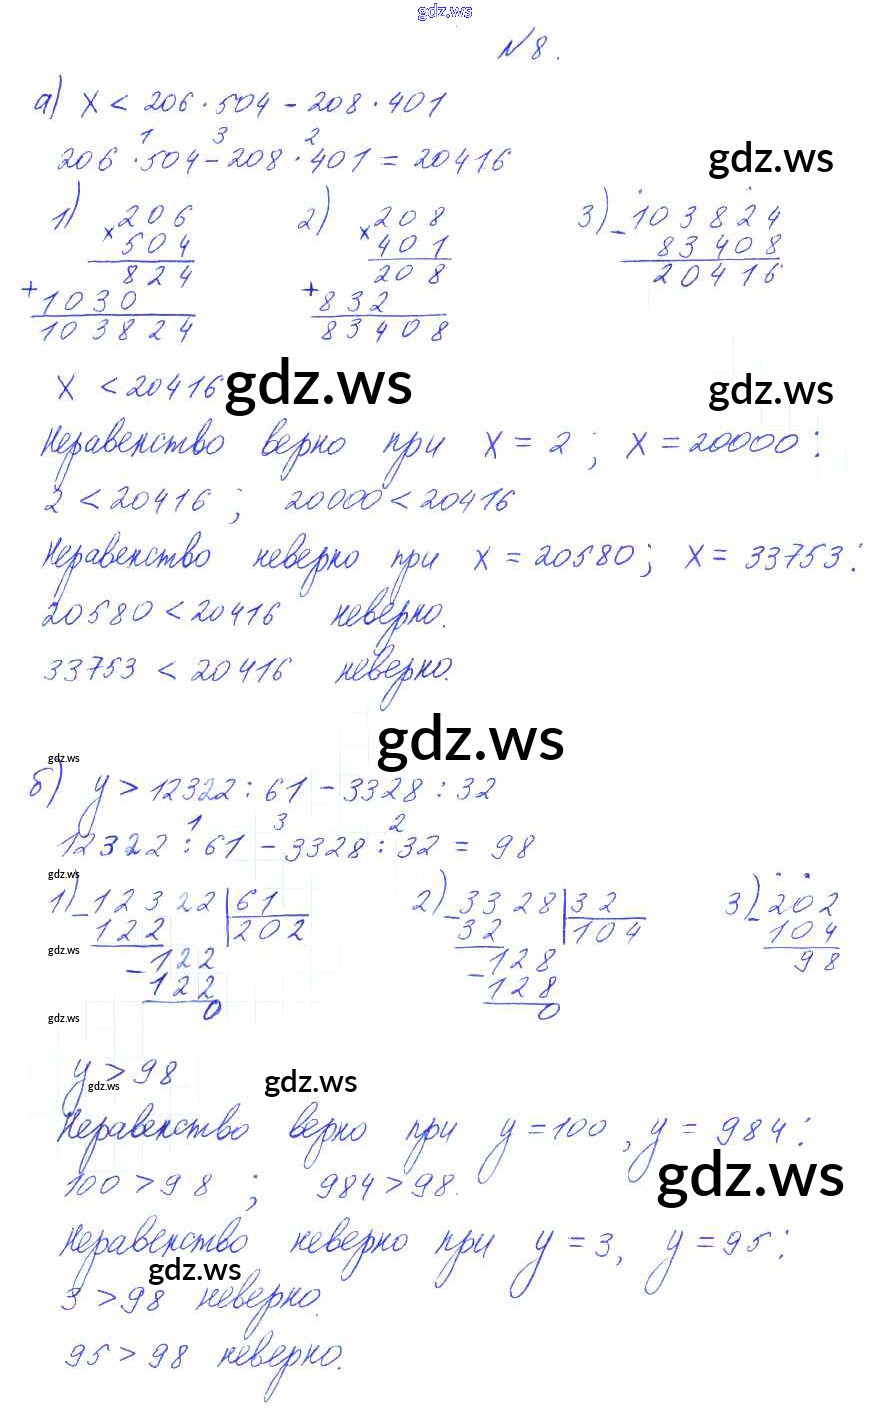 gdz.ws
№8.
а) x < 206 · 504 - 208 · 401
1 3 2
206 · 504 - 208 · 401 = 20416
gdz.ws
1) × 206 2) × 208 3) - 103824
504 401 83408
824 208 20416
+ 1030 + 832
103824 83408
x < 20416 gdz.ws gdz.ws
Неравенство верно при x = 2 ; x = 20000 :
2 < 20416 ; 20000 < 20416
Неравенство неверно при x = 20580; x = 33753 :
20580 < 20416 неверно.
33753 < 20416 неверно.
gdz.ws
gdz.ws
б) y > 12322 : 61 - 3328 : 32
1 3 2
12322 : 61 - 3328 : 32 = 98
gdz.ws
1) - 12322 | 61 2) - 3328 | 32 3) - 202
122 | 202 32 | 104 104
gdz.ws
- 122 - 128 98
122 128
0 0
gdz.ws
y > 98
gdz.ws gdz.ws
Неравенство верно при y = 100 , y = 984 :
100 > 98 ; 984 > 98. gdz.ws
Неравенство неверно при y = 3, y = 95 :
gdz.ws
3 > 98 неверно.
95 > 98 неверно.